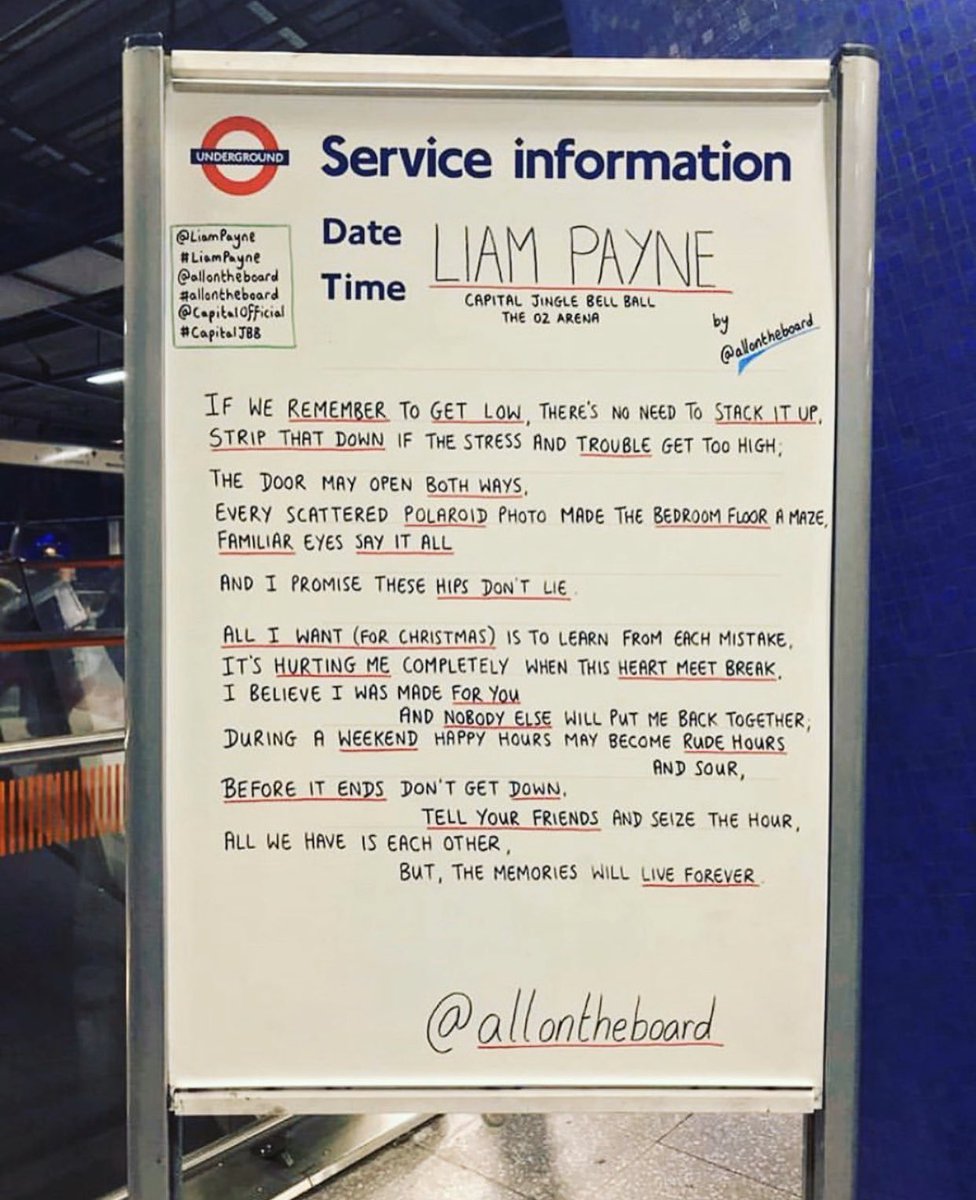 UNDERGROUND
Service information
@LiamPayne
#LiamPayne
@allontheboard
#allontheboard
@CapitalOfficial
#CapitalJBB
Date
Time
LIAM PAYNE
CAPITAL JINGLE BELL BALL
THE O2 ARENA
by
@allontheboard
IF WE REMEMBER TO GET LOW, THERE'S NO NEED TO STACK IT UP,
STRIP THAT DOWN IF THE STRESS AND TROUBLE GET TOO HIGH;
THE DOOR MAY OPEN BOTH WAYS,
EVERY SCATTERED POLAROID PHOTO MADE THE BEDROOM FLOOR A MAZE,
FAMILIAR EYES SAY IT ALL
AND I PROMISE THESE HIPS DON'T LIE.
ALL I WANT (FOR CHRISTMAS) IS TO LEARN FROM EACH MISTAKE,
IT'S HURTING ME COMPLETELY WHEN THIS HEART MEET BREAK.
I BELIEVE I WAS MADE FOR YOU
AND NOBODY ELSE WILL PUT ME BACK TOGETHER;
DURING A WEEKEND HAPPY HOURS MAY BECOME RUDE HOURS
AND SOUR,
BEFORE IT ENDS DON'T GET DOWN,
TELL YOUR FRIENDS AND SEIZE THE HOUR,
ALL WE HAVE IS EACH OTHER,
BUT, THE MEMORIES WILL LIVE FOREVER.
@allontheboard